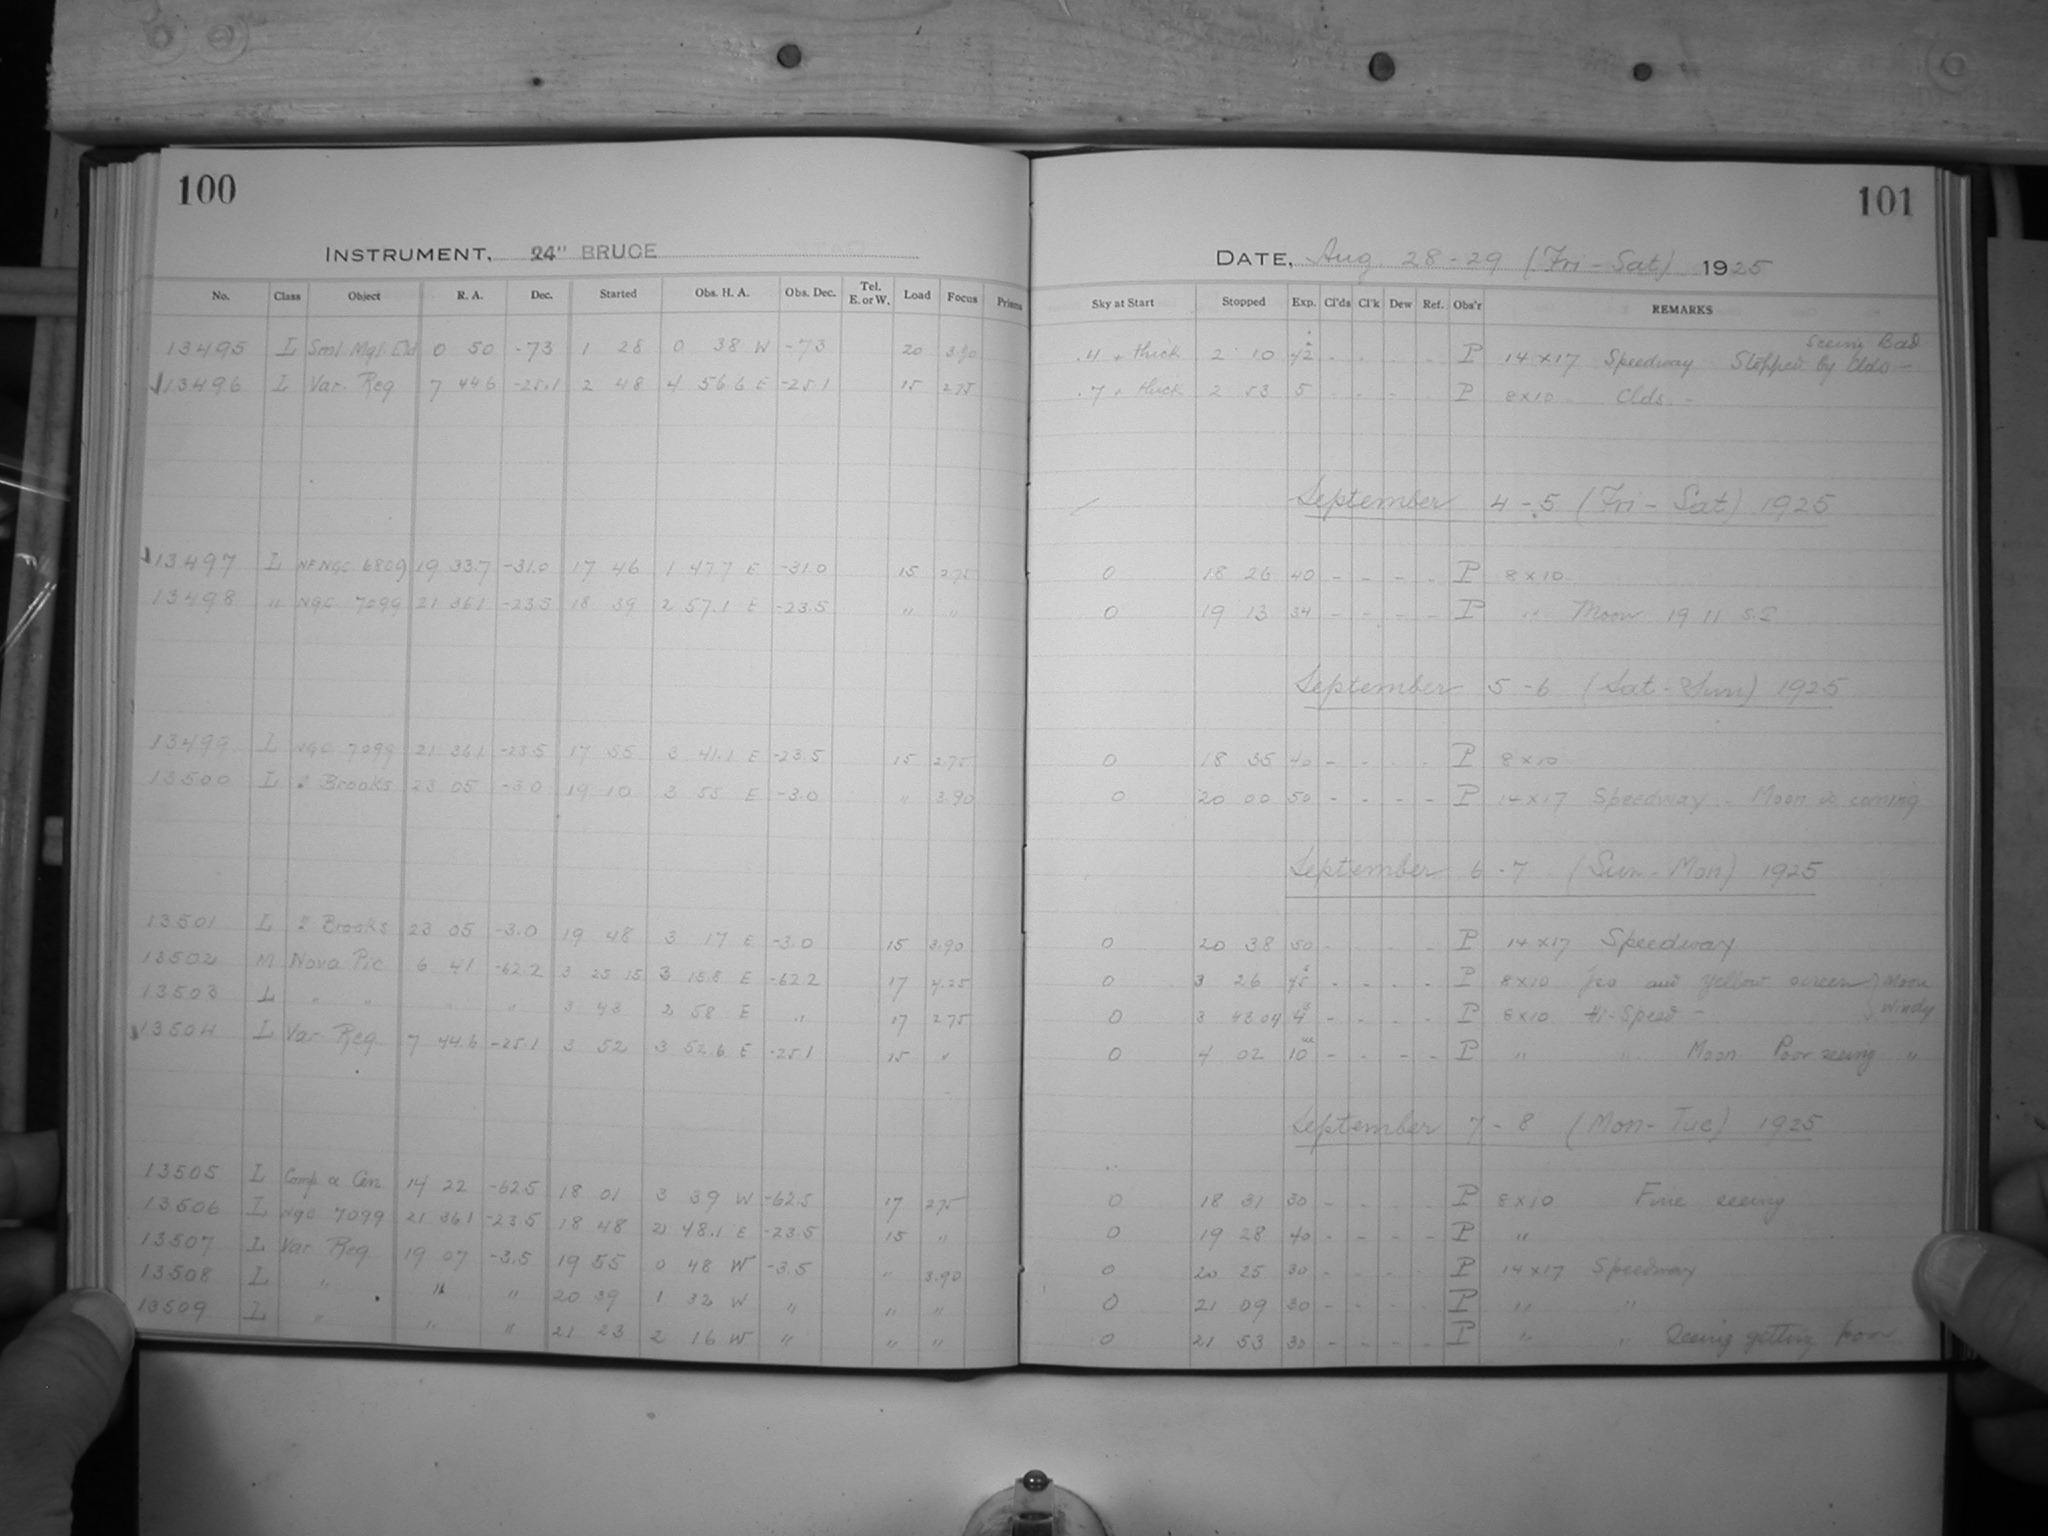 100
INSTRUMENT, 24" BRUCE
No. Class Object R. A. Dec. Started Obs. H. A. Obs. Dec. Tel. E. or W. Load Focus Prisms
13495 L Sml Mgl. Cld 0 50 -73 1 28 0 38 W -73 20 3.90
13496 L Var. Reg 7 44.6 -25.1 2 48 4 56.6 E -25.1 15 2.75
13497 L NF NGC 6809 19 33.7 -31.0 17 46 1 47.7 E -31.0 15 2.75
13498 " NGC 7099 21 36.1 -23.5 18 39 2 57.1 E -23.5 " "
13499 L NGC 7099 21 36.1 -23.5 17 55 3 41.1 E -23.5 15 2.75
13500 L Brooks 23 05 -3.0 19 10 3 55 E -3.0 " 3.90
13501 L Brooks 23 05 -3.0 19 48 3 17 E -3.0 15 3.90
13502 M Nova Pic 6 41 -62.2 3 25 15 3 15.8 E -62.2 17 4.25
13503 L " " " " 3 43 2 58 E " 17 2.75
13504 L Var Reg 7 44.6 -25.1 3 52 3 52.6 E -25.1 15 "
13505 L Comp α Cen 14 22 -62.5 18 01 3 39 W -62.5 17 2.75
13506 L NGC 7099 21 36.1 -23.5 18 48 2 48.1 E -23.5 15 "
13507 L Var Reg 19 07 -3.5 19 55 0 48 W -3.5 " 3.90
13508 L " " " 20 39 1 32 W " " "
13509 L " " " 21 23 2 16 W " " "
101
DATE, Aug 28-29 (Fri-Sat) 1925
Sky at Start Stopped Exp. Cl'ds Cl'k Dew Ref. Obs'r REMARKS
Seeing Bad
.4 + thick 2 10 42 - - - - P 14x17 Speedway Stopped by Clds -
.7 + thick 2 53 5 - - - - P 8x10 - Clds -
September 4-5 (Fri-Sat) 1925
0 18 26 40 - - - - P 8x10
0 19 13 34 - - - - P " Moon 19 11 S.T
September 5-6 (Sat-Sun) 1925
0 18 35 40 - - - - P 8x10
0 20 00 50 - - - - P 14x17 Speedway - Moon is coming
September 6-7 (Sun-Mon) 1925
0 20 38 50 - - - - P 14x17 Speedway
0 3 26 45s - - - - P 8x10 Iso and Yellow screen Moon
0 3 43 04 4s - - - - P 8x10 Hi-Speed - Windy
0 4 02 10m - - - - P " " Moon Poor seeing "
September 7-8 (Mon-Tue) 1925
0 18 31 30 - - - - P 8x10 Fine seeing
0 19 28 40 - - - - P "
0 20 25 30 - - - - P 14x17 Speedway
0 21 09 30 - - - - P " "
0 21 53 30 - - - - P " " Seeing getting poor